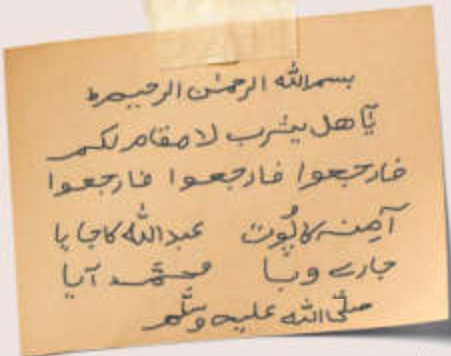 بسم الله الرحمٰن الرحیم ط
یٰٓا هل یثرب لا مقام لکم
فارجعوا فارجعوا فارجعوا
آمنہ کا پُوت عبد الله کا جایا
جارے وبا محمّد آیا
صلّی الله علیہ وسلّم